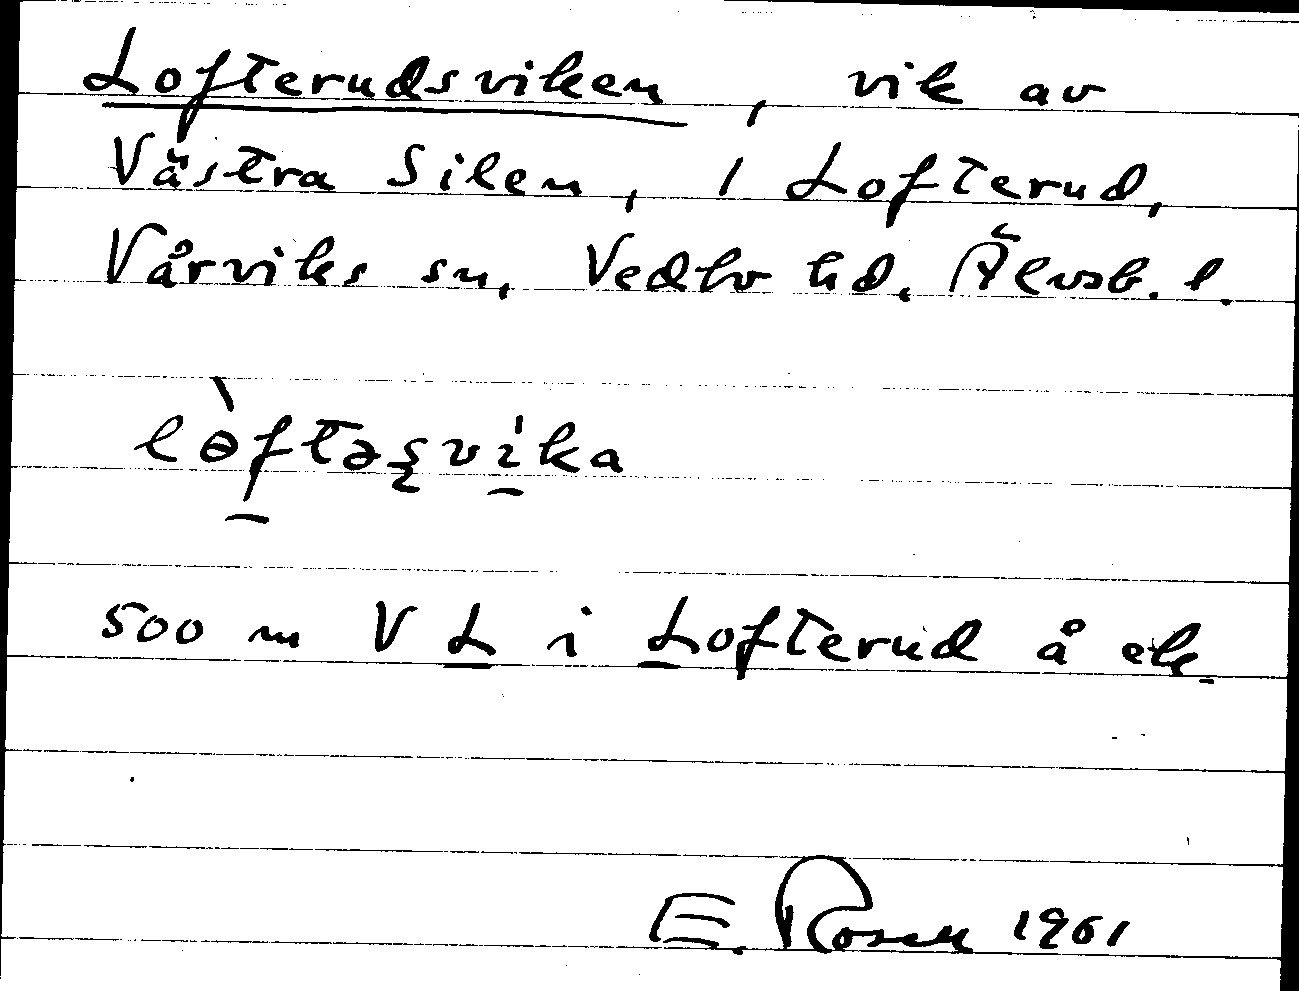 Lofterudsviken, vik av
Västra Silen, 1 Lofterud,
Vårviks sn, Vedbo hd, Älvsb. l.
500 m V L i Lofterud å ek.
E. Rosell 1961